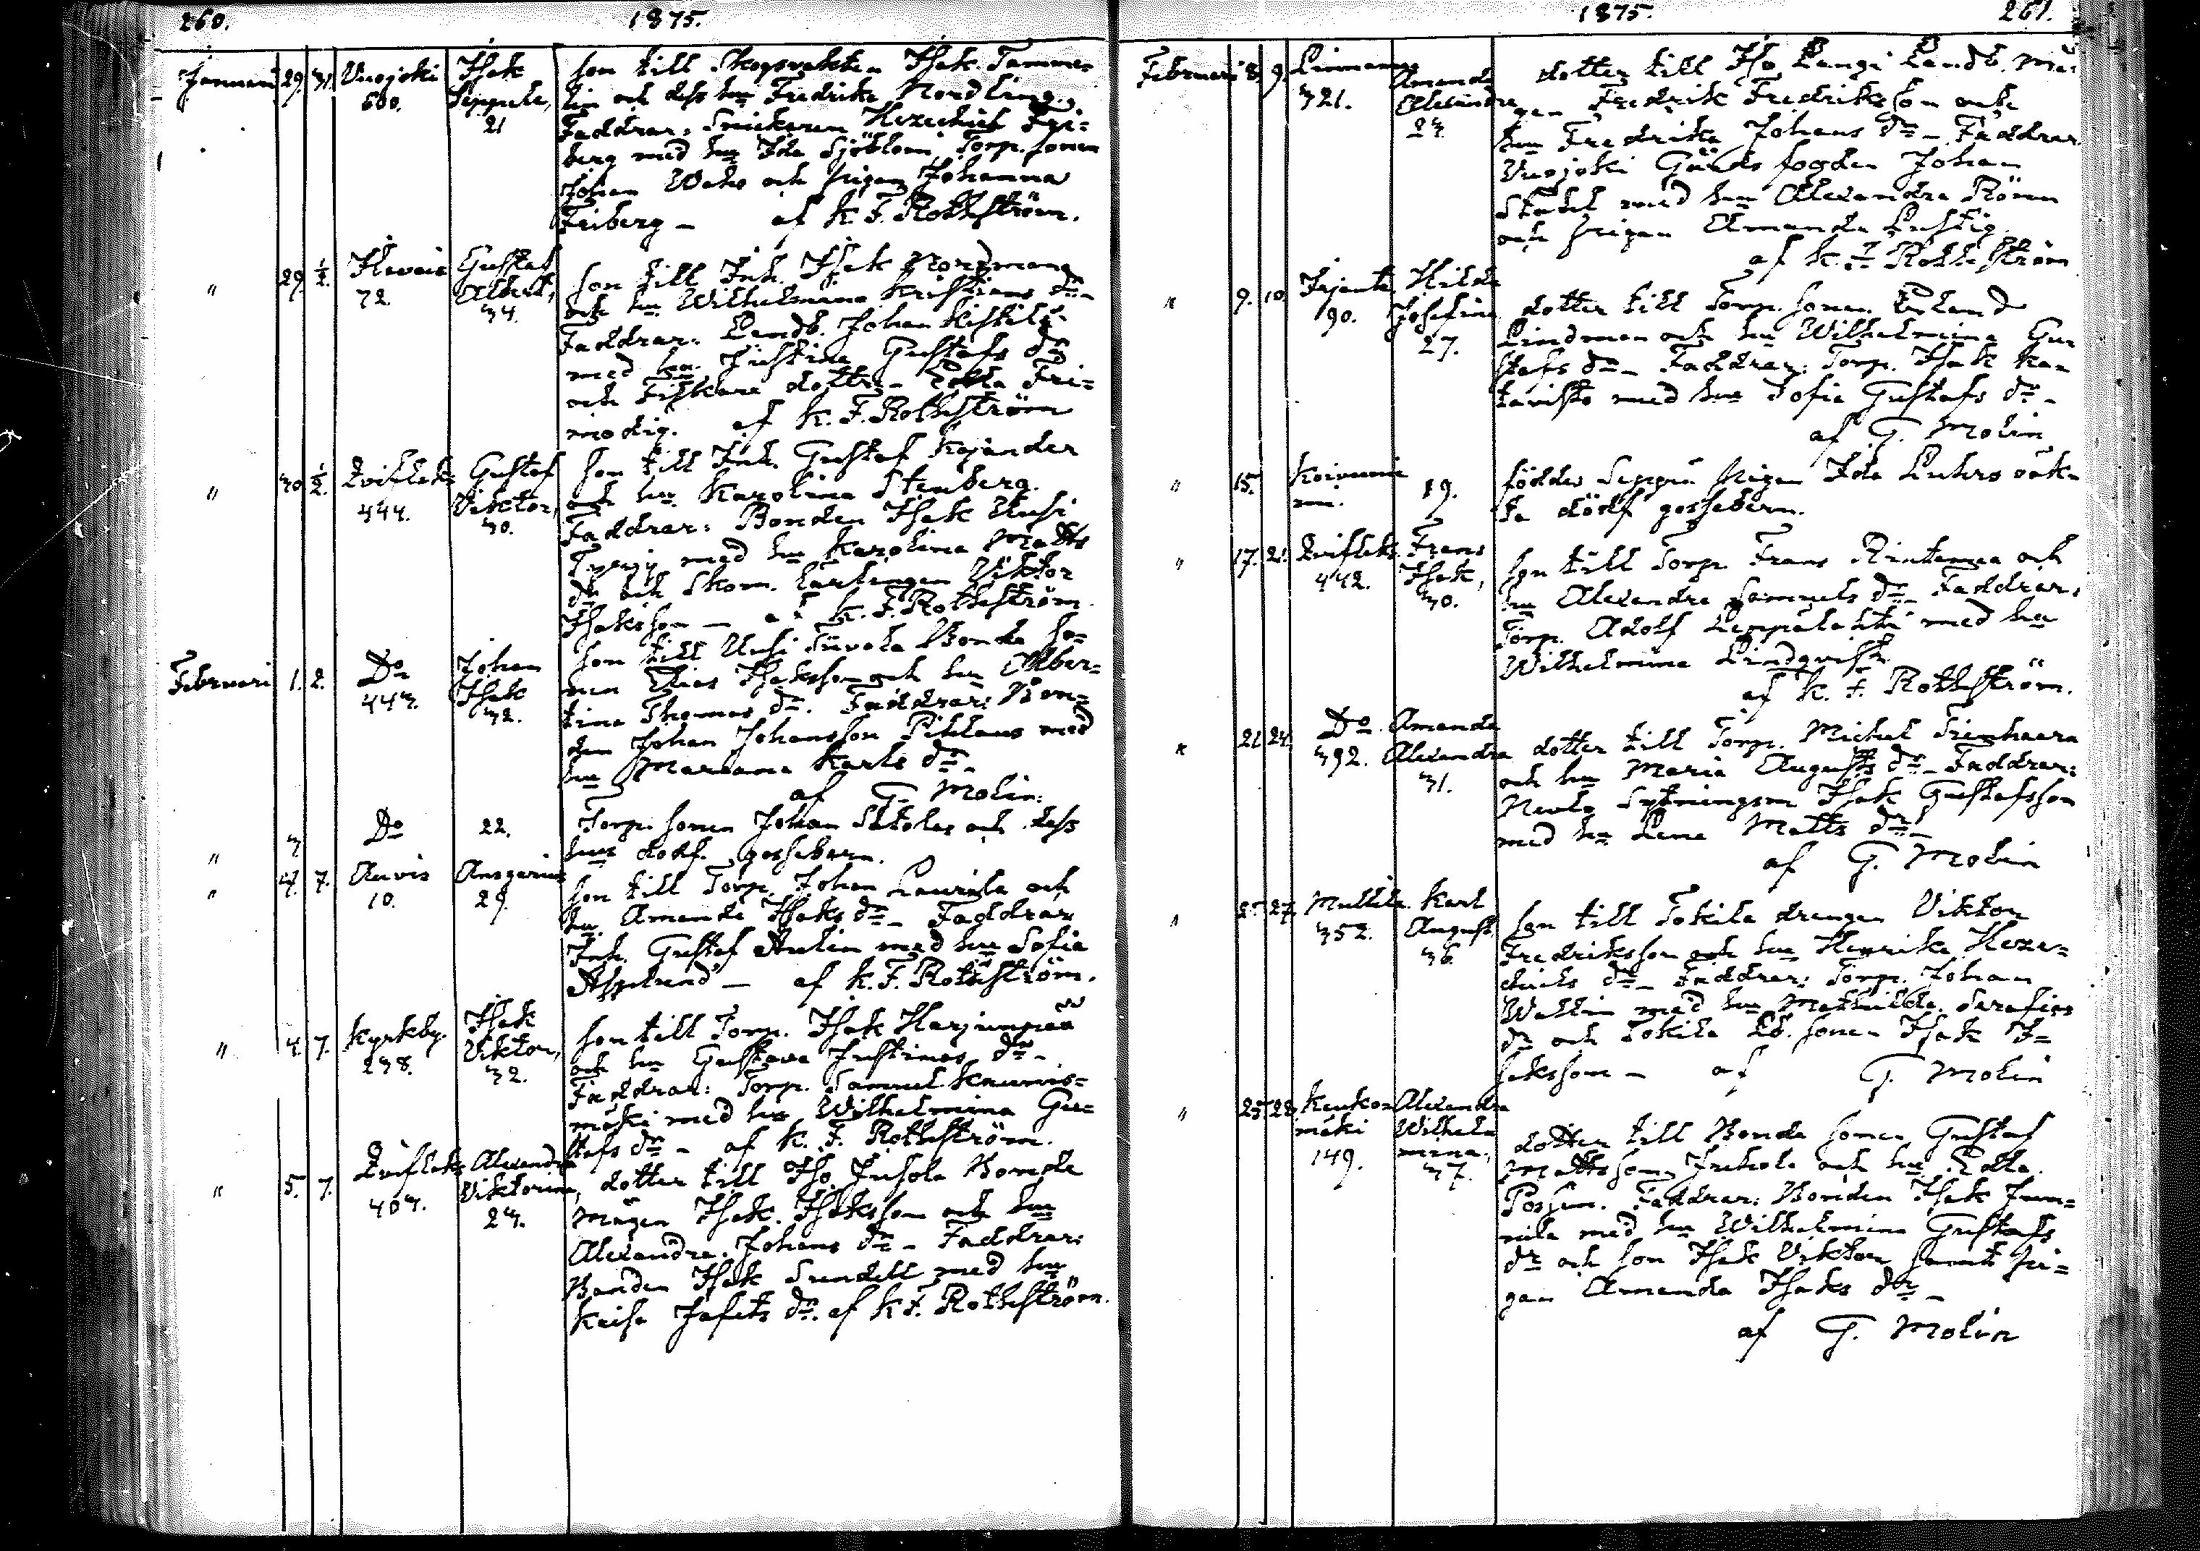 260. 1875.
Januari 29. 31. Vuojoki 600. Isak Seppele, 21
Son till Skogsvakten Isak Tamme-
lin och dess hu Fredrika Nordling.
Faddrar: Snickaren Hezechiel Fri-
berg med hu Ida Sjöblom, Torp. sonen
Johan Weho och pigan Johanna
Friberg — af K. F. Rothström.
" 29. 1/2. 72. Gustaf Albert, 34.
Son till Inh. Isak Nordman
och hu Wilhelmina Kristians dr —
Faddrar: Landb. Johan
med hu Justina Gustafs dr
och Fiskare dottr. Fri-
modig. af K. F. Rothström
" 30. 1/2. 444. Gustaf Viktor, 30.
Son till Inh. Gustaf Kajander
och hu Karolina Stenberg.
Faddrar: Bonden Isak Uusi
med hu Karolina Matts
dr och Skom. Lärlingen Viktor
Isaksson — af K. F. Rothström.
Februari 1. 2. Do 443. Johan Isak 32.
Son till Uusi Bonde So-
nen Elias Isaksson och hu Alber-
tina Thomas dr. Faddrar: Bon-
den Johan Johansson Pihlaus med
hu Mariana Karls dr —
af G. Molin.
" 3 Do 22.
Torp. sonen Johan och dess
hus dödf. gossebarn.
" 4. 7. Auvis 10. Ansgarius 29.
Son till Torp. Johan Laurila och
hu Amanda Isaks dr — Faddrar
Inh. Gustaf Aulin med hu Sofia
Asplund — af K. F. Rothström.
" 4. 7. Kyrkby. 238. Isak Viktor, 32.
Son till Torp. Isak Harjunpää
och hu Gustava Justinas dr —
Faddrar: Torp. Samuel Kaunis-
mäki med hu Wilhelmina Gu-
stafs dr — af K. F. Rothström.
" 5. 7. 403. Alexandra Viktorina, 23.
dotter till Iso Juhola Bonde
Mågen Isak Isaksson och hu
Alexandra Johans dr — Faddrar:
Bonden Isak Sundell med hu
Kaisa Jafets dr. af K. F. Rothström.
1875. 261.
Februari 8. 9. Linnamaa 321. Amanda Alexandra 23.
dotter till Iso Langi Landb. må-
gen Fredrik Fredriksson och
hu Fredrika Johans dr — Faddrar
Vuojoki Gårds fogden Johan
Stadel med hu Alexandra Römn
och pigan Amanda Lustig.
af K. F. Rothström
" 9. 10. Irjanta 90. Hilda Josefina 27.
dotter till Torp. sonen Erland
Lindman och hu Wilhelmina Gu-
stafs dr — Faddrar: Torp. Isak Ka-
taristo med hu Sofia Gustafs dr —
af G. Molin
" 15. 19.
föddes Seppä Pigan Ida Luhrs oäk-
ta dödf gossebarn.
" 17. 21. 442. Frans Isak, 30.
Son till Torp. Frans Rintamaa och
hu Alexandra Samuels dr — Faddrar:
Torp. Adolf Leppälahti med hu
Wilhelmina Lindqvist.
af K. F. Rothström.
" 21 24. Do 392. Amanda Alexandra 31.
dotter till Torp. Michel Sienhaara
och hu Maria Augusts dr — Faddrar:
Sytningsm Isak Gustafsson
med hu Lena Matts dr —
af G. Molin
" 25 27. Mullila 352. Karl August 36.
Son till Tokila drengen Viktor
Fredriksson och hu Henrika Heze-
chiels dr — Faddrar: Torp. Johan
Wallin med hu Mathilda Serafias
dr och Tokila Lb. sonen Isak I-
saksson — af G. Molin
" 25 28. Kaukomäki 149. Alexandra Wilhelmina, 37.
dotter till Bonde sonen Gustaf
Mattsson Juhola och hu
Faddrar: Bonden Isak Jun-
nila med hu Wilhelmina Gustafs
dr och son Isak Viktor samt Pi-
gan Amanda Isaks dr —
af G. Molin